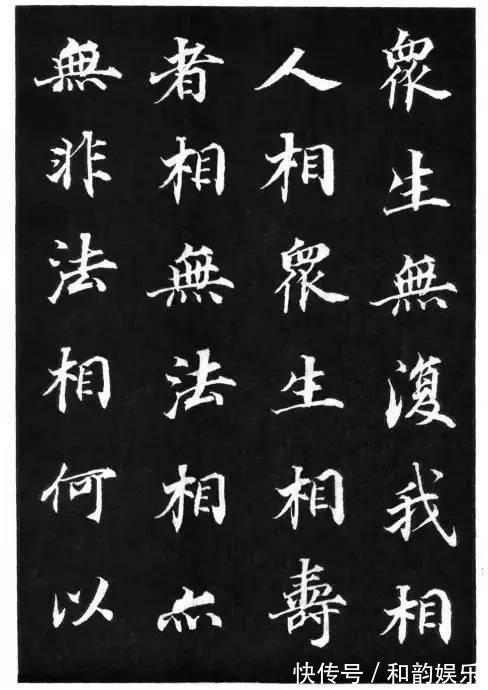 眾生無復我相
人相眾生相壽
者相無法相亦
無非法相何以
快传号/和韵娱乐